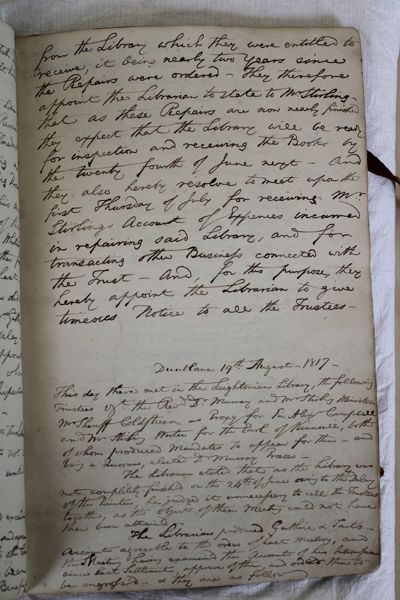 from the Library which they were entitled to
receive, it being nearly two years since
the Repairs were ordered – They therefore
appoint the Librarian to state to Mr Stirling –
that as these Repairs are now nearly finished
they expect that the Library will be ready
for inspection and receiving the Books by
the twenty fourth of June next – And
they also hereby resolve to meet upon the
first Thursday of July for receiving Mr
Stirlings Account of Expences incurred
in repairing said Library, and for
transacting other Business connected with
the Trust – And, for this purpose, they
hereby appoint the Librarian to give
timeous Notice to all the Trustees –
Dunblane 19th August – 1817 –
This day there met in the Leightonian Library, the following
Trustees Vizt. the Revd. Dr. Murray and Mr Stirling Ministers
Mr Sheriff Coldstream, as Proxy for Sr. Alexr Campbell
and Mr Stirling Writer for the Earl of Kinnoull, both
of whom produced Mandates to appear for them – and
being a Quorum, elected Dr Murray Preses –
The Librarian stated that as the Library was
not completely finished on the 24th of June owing to the delay
of the Painter, he judged it unnecessary to call the Trustees
together, as the object of their Meeting could not have
then been attained –
The Librarian produced Guthrie &
Account agreeable to the order of last meeting, and
the Meeting having examined the Accounts of his
since last Settlement approve of them, and order them to
be engrossed – as they are as follow